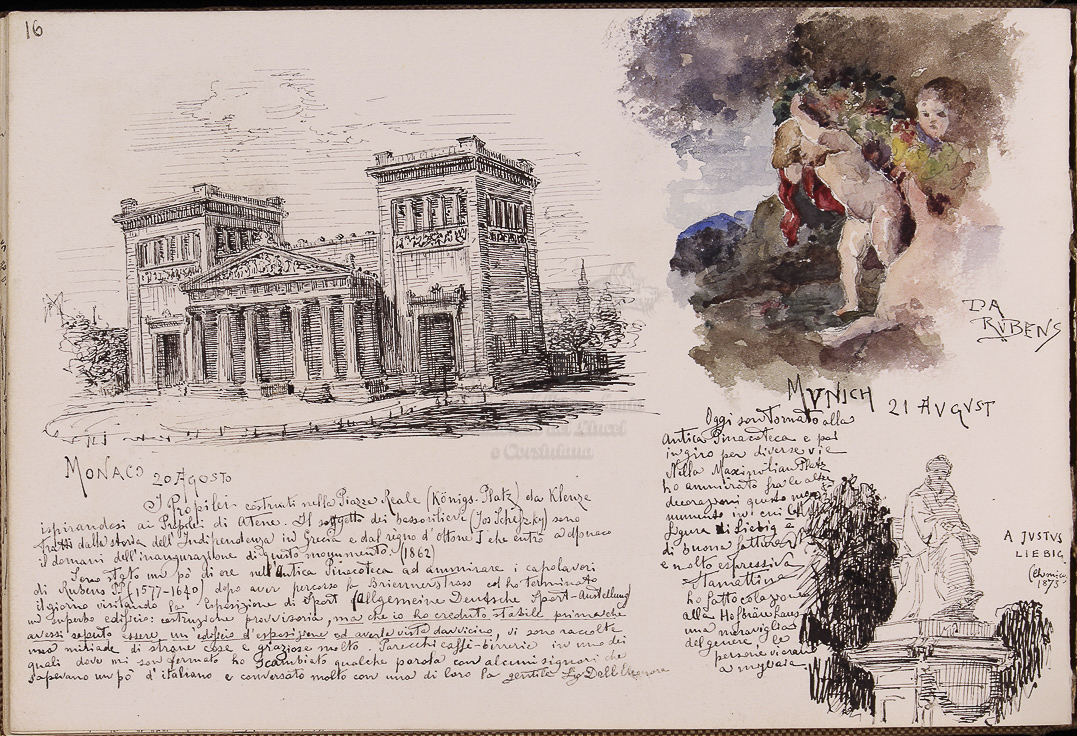 16
DA
RVBENS
MONACO 20 AGOSTO
I Propilei costruiti nella Piazza Reale (Königs-Platz) da Klenze
ispirandosi ai Propilei di Atene. Il soggetto dei bassorilievi sono
tratti dalla storia dell'Indipendenza in Grecia e dal regno d'Ottone I che entrò a
il domani dell'inaugurazione di questo monumento. (1862)
Sono stato un pò di ore nell'Antica Pinacoteca ad ammirare i capolavori
di Rubens P.P. (1577-1640) dopo aver percorso la Briennerstrass ed ho terminato
il giorno visitando la Esposizione di Sport (Allgemeine Deutsche Sport-Austellung
un superbo edificio: costruzione provvisoria, ma che io ho creduto stabile prima che
avessi saputo essere un edificio d'esposizione ed averlo visto da vicino, vi sono raccolte
una miriade di strane cose e graziose molto. Parecchi caffè-birrerie in uno dei
quali dove mi son fermato ho scambiato qualche parola con alcuni signori che
sapevano un pò d'italiano e conversato molto con una di loro la gentile Sig
MVNICH 21 AVGVST
Oggi son tornato alla
Antica Pinacoteca e poi
in giro per diverse vie
Nella Maximilian Platz
ho ammirato fra le altre
decorazioni questo mo
numento in cui la
figura di Liebig è
di buona fattura
e molto espressiva
Stamattina
ho fatto colazione
alla Hofbräuhaus
una meraviglia
del genere le
persone vi erano
a migliaia
A JVSTVS
LIEBIG
Chemico
1873